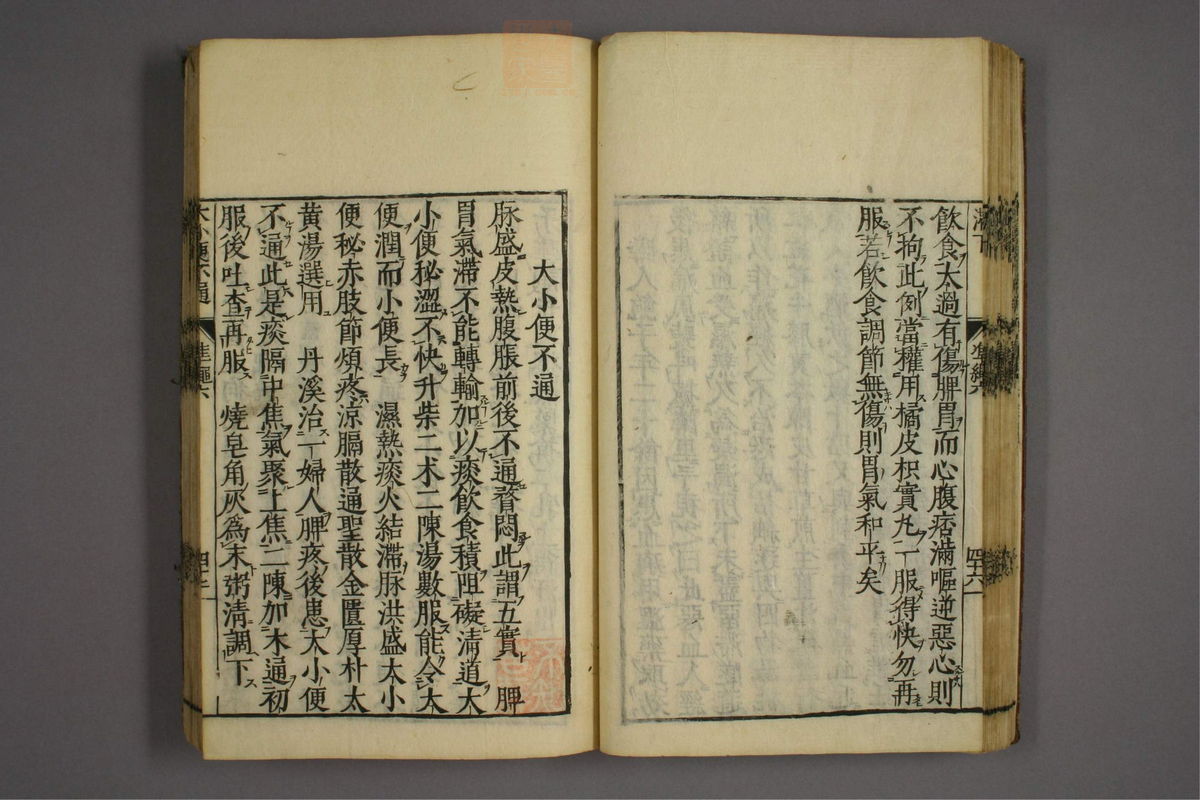 飲食太過有傷脾胃而心腹痞滿嘔逆惡心則
不拘此例當權用橘皮枳實丸一服得快勿再
服若飲食調節無傷則胃氣和平矣
大小便不通
脉盛皮熱腹脹前後不通瞀悶此謂五實　脾
胃氣滯不能轉輸加以痰飲食積阻礙清道大
小便秘澀不快升柴二朮二陳湯數服能令大
便潤而小便長　濕熱痰火結滯脉洪盛大小
便秘赤肢節煩疼凉膈散通聖散金匱厚朴大
黄湯選用　丹溪治一婦人脾疼後患大小便
不通此是痰隔中焦氣聚上焦二陳加木通初
服後吐查再服　燒皂角灰為末粥清調下
大小便不通
準繩六